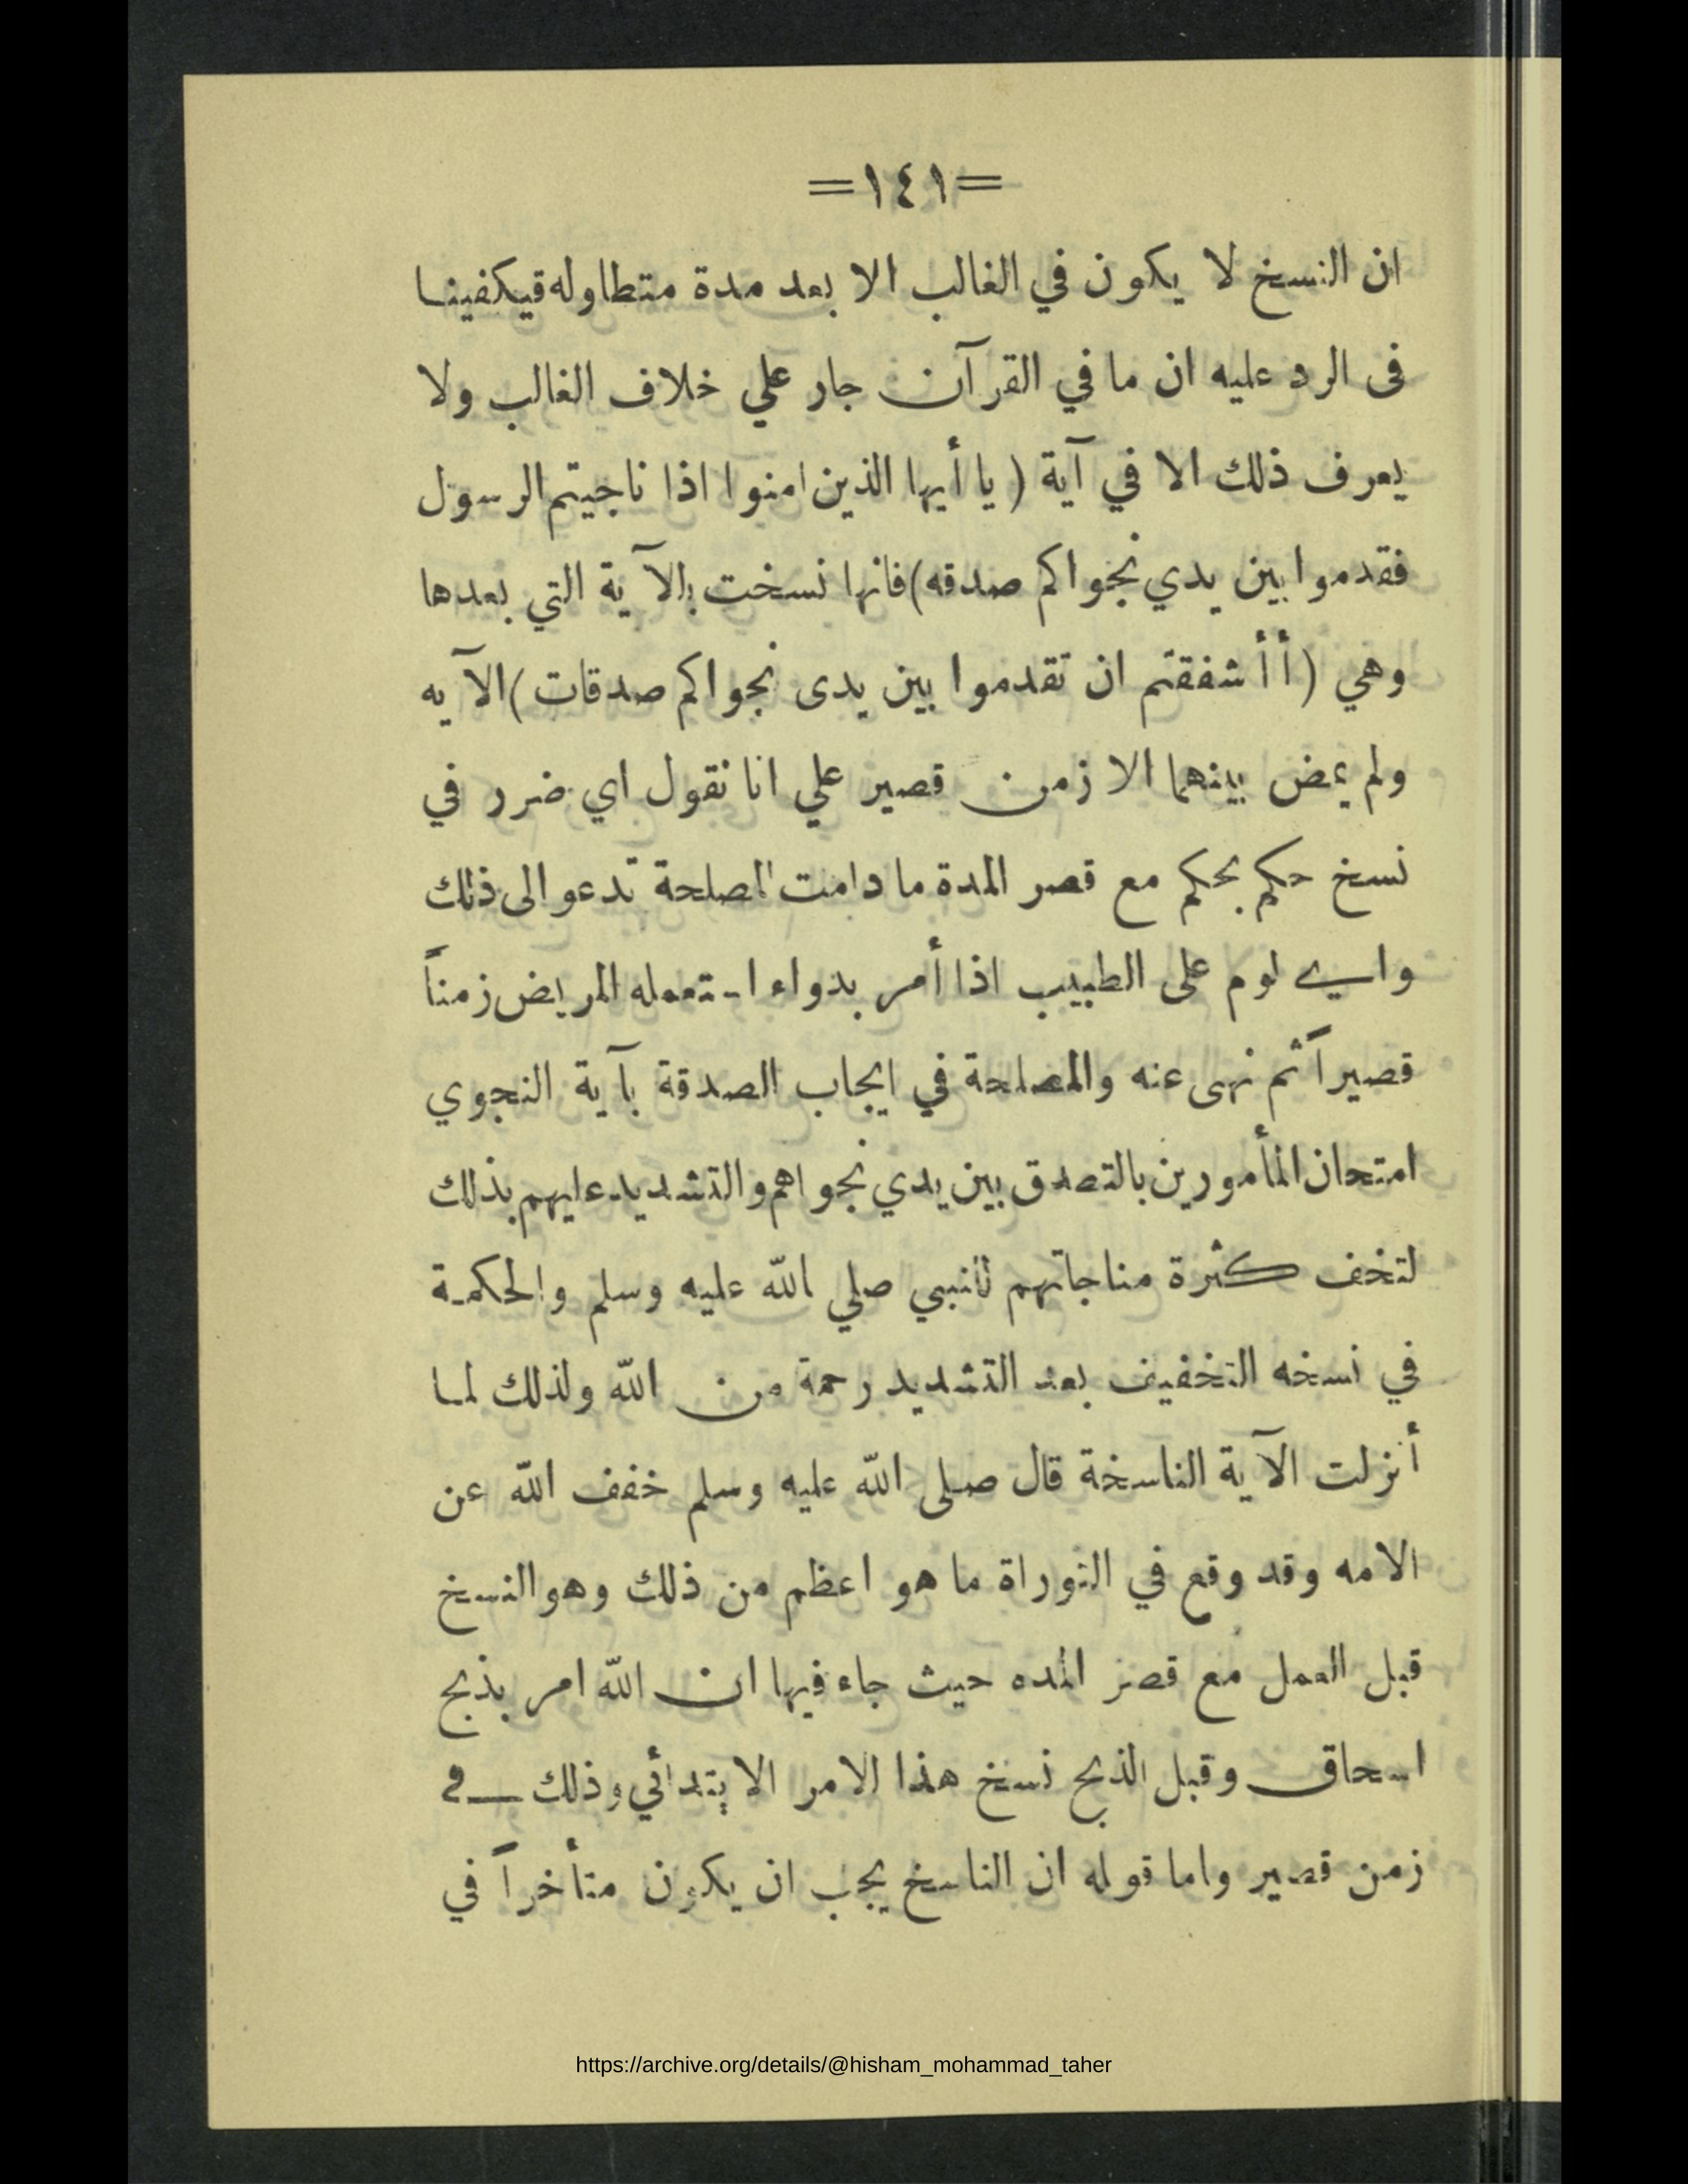 =١٤١=
ان النسخ لا يكون في الغالب الا بعد مدة متطاوله قيكفينا
فى الرد عليه ان ما في القرآن جار علي خلاف الغالب ولا
يعرف ذلك الا في آية ( يا أيها الذين امنوا اذا ناجيتم الرسول
فقدموا بين يدي نجواكم صدقه) فانها نسخت بالآية التي بعدها
وهي (أأشفقتم ان تقدموا بين يدى نجواكم صدقات) الآيه
ولم يمض بينهما الا زمن قصير علي انا نقول اي ضرر في
نسخ حكم بحكم مع قصر المدة ما دامت المصلحة تدعو الى ذلك
واي لوم على الطبيب اذا أمر بدواء استعمله المريض زمناً
قصيراً ثم نهى عنه والمصلحة في ايجاب الصدقة بآية النجوي
امتحان المأمورين بالتصدق بين يدي نجواهم والتشديد عليهم بذلك
لتخف كثرة مناجاتهم للنبي صلي الله عليه وسلم والحكمة
في نسخه التخفيف بعد التشديد رحمة من الله ولذلك لما
أنزلت الآية الناسخة قال صلى الله عليه وسلم خفف الله عن
الامه وقد وقع في التوراة ما هو اعظم من ذلك وهو النسخ
قبل العمل مع قصر المده حيث جاء فيها ان الله امر بذبح
اسحاق وقبل الذبح نسخ هذا الامر الابتدائي وذلك في
زمن قصير واما قوله ان الناسخ يجب ان يكون متأخراً في
https://archive.org/details/@hisham_mohammad_taher